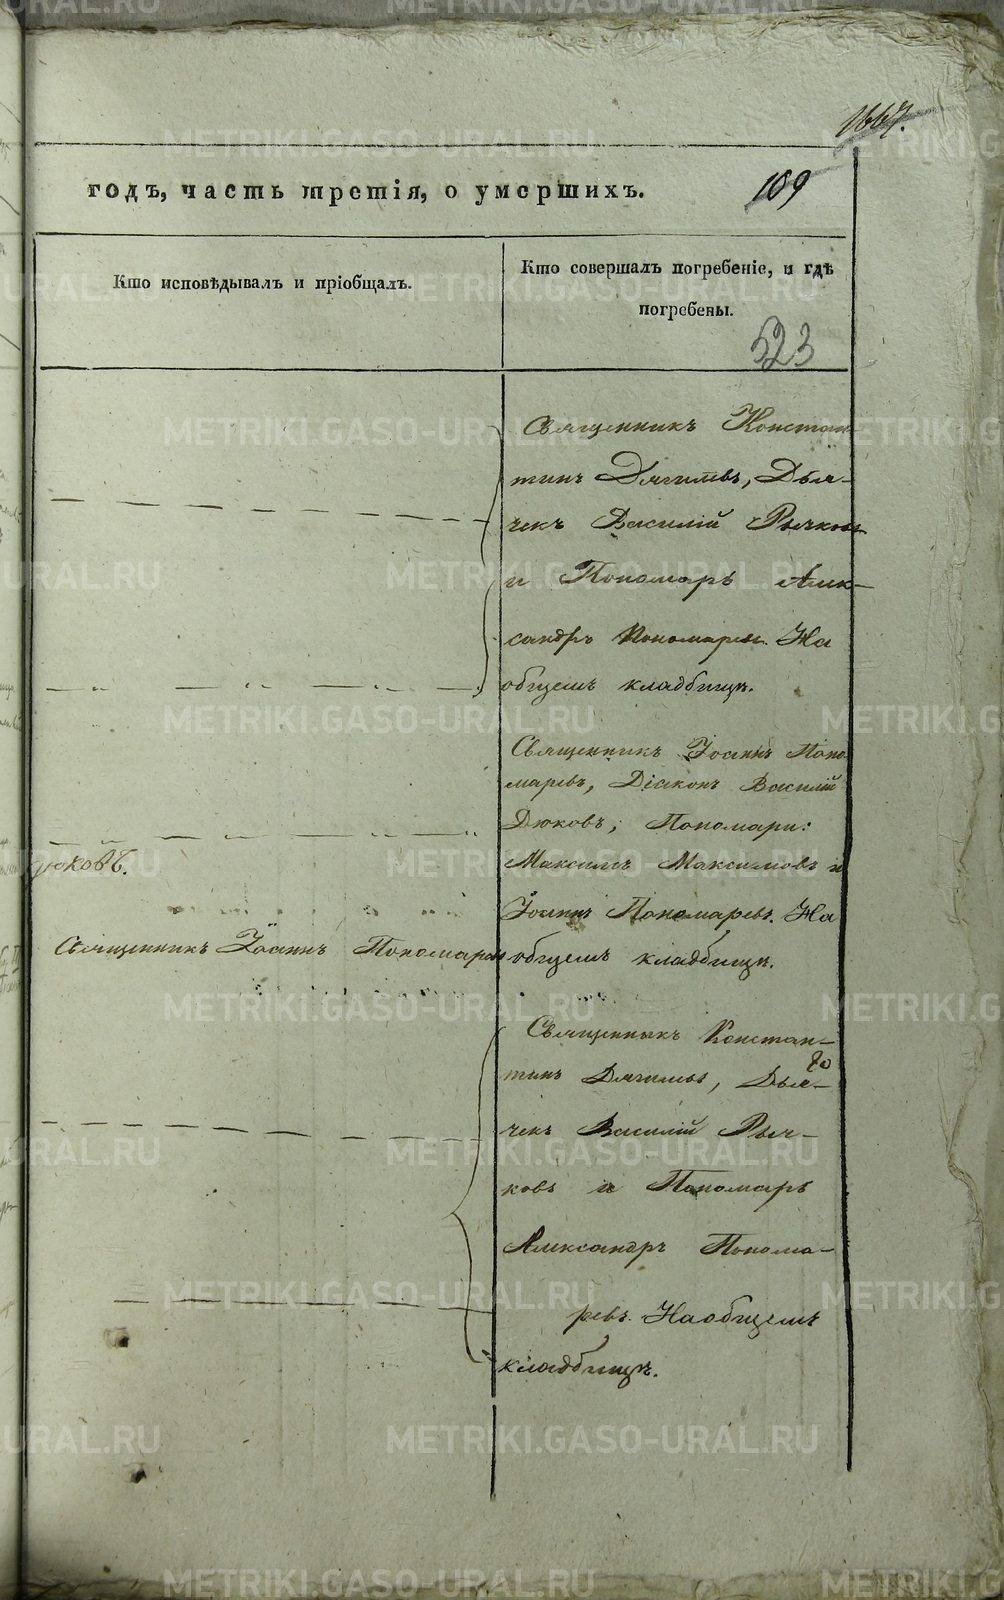 1667.
годъ, часть третія, о умершихъ.
109
Кто исповѣдывалъ и пріобщалъ.
Кто совершалъ погребеніе, и гдѣ
погребены.
523
Священникъ Констан-
тинъ Дягилевъ, Дья-
чекъ Василій Рычковъ
и Пономарь Алек-
сандръ Пономаревъ. На
общемъ кладбищѣ.
Священникъ Іоаннъ Поно-
маревъ, Діаконъ Василій
Дюковъ, Пономари:
Максимъ Максимовъ и
Іоаннъ Пономаревъ. На
общемъ кладбищѣ.
дюковъ.
Священникъ Іоаннъ Пономаревъ
Священникъ Констан-
тинъ Дягилевъ, Дья-
чекъ Василій Рыч-
ковъ и Пономарь
Александръ Понома-
ревъ. На общемъ
кладбищѣ.
METRIKI.GASO-URAL.RU